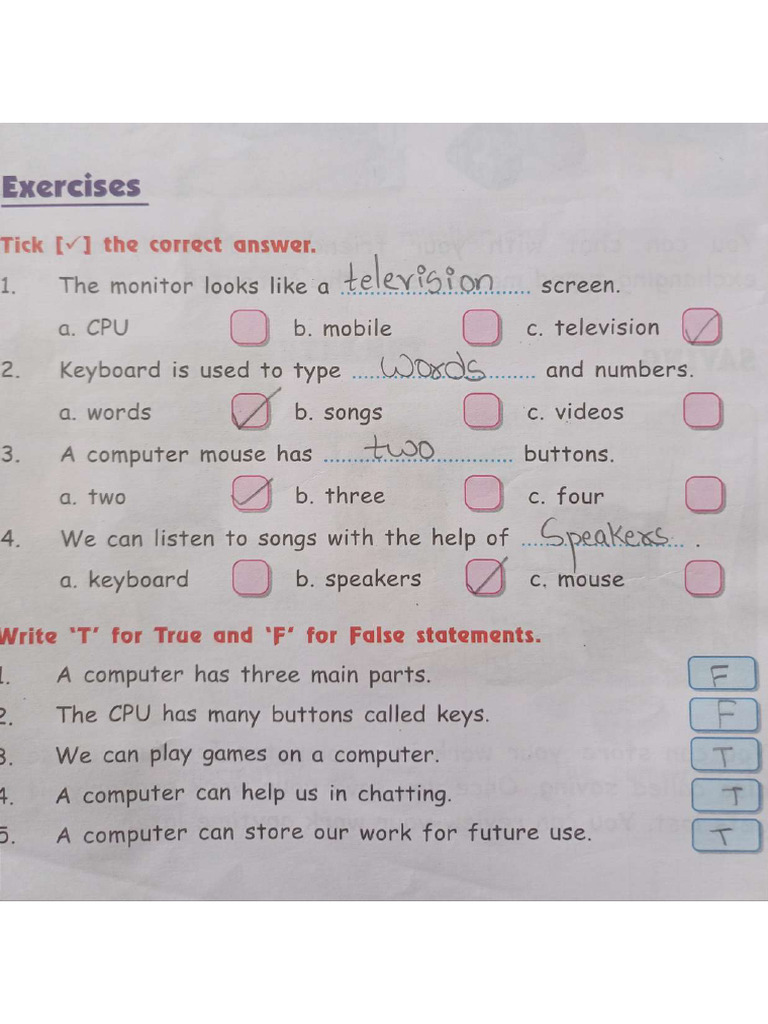 Exercises
Tick [✓] the correct answer.
1. The monitor looks like a television screen.
a. CPU b. mobile c. television ✓
2. Keyboard is used to type words and numbers.
a. words ✓ b. songs c. videos
3. A computer mouse has two buttons.
a. two ✓ b. three c. four
4. We can listen to songs with the help of Speakers.
a. keyboard b. speakers ✓ c. mouse
Write 'T' for True and 'F' for False statements.
1. A computer has three main parts. F
2. The CPU has many buttons called keys. F
3. We can play games on a computer. T
4. A computer can help us in chatting. T
5. A computer can store our work for future use. T